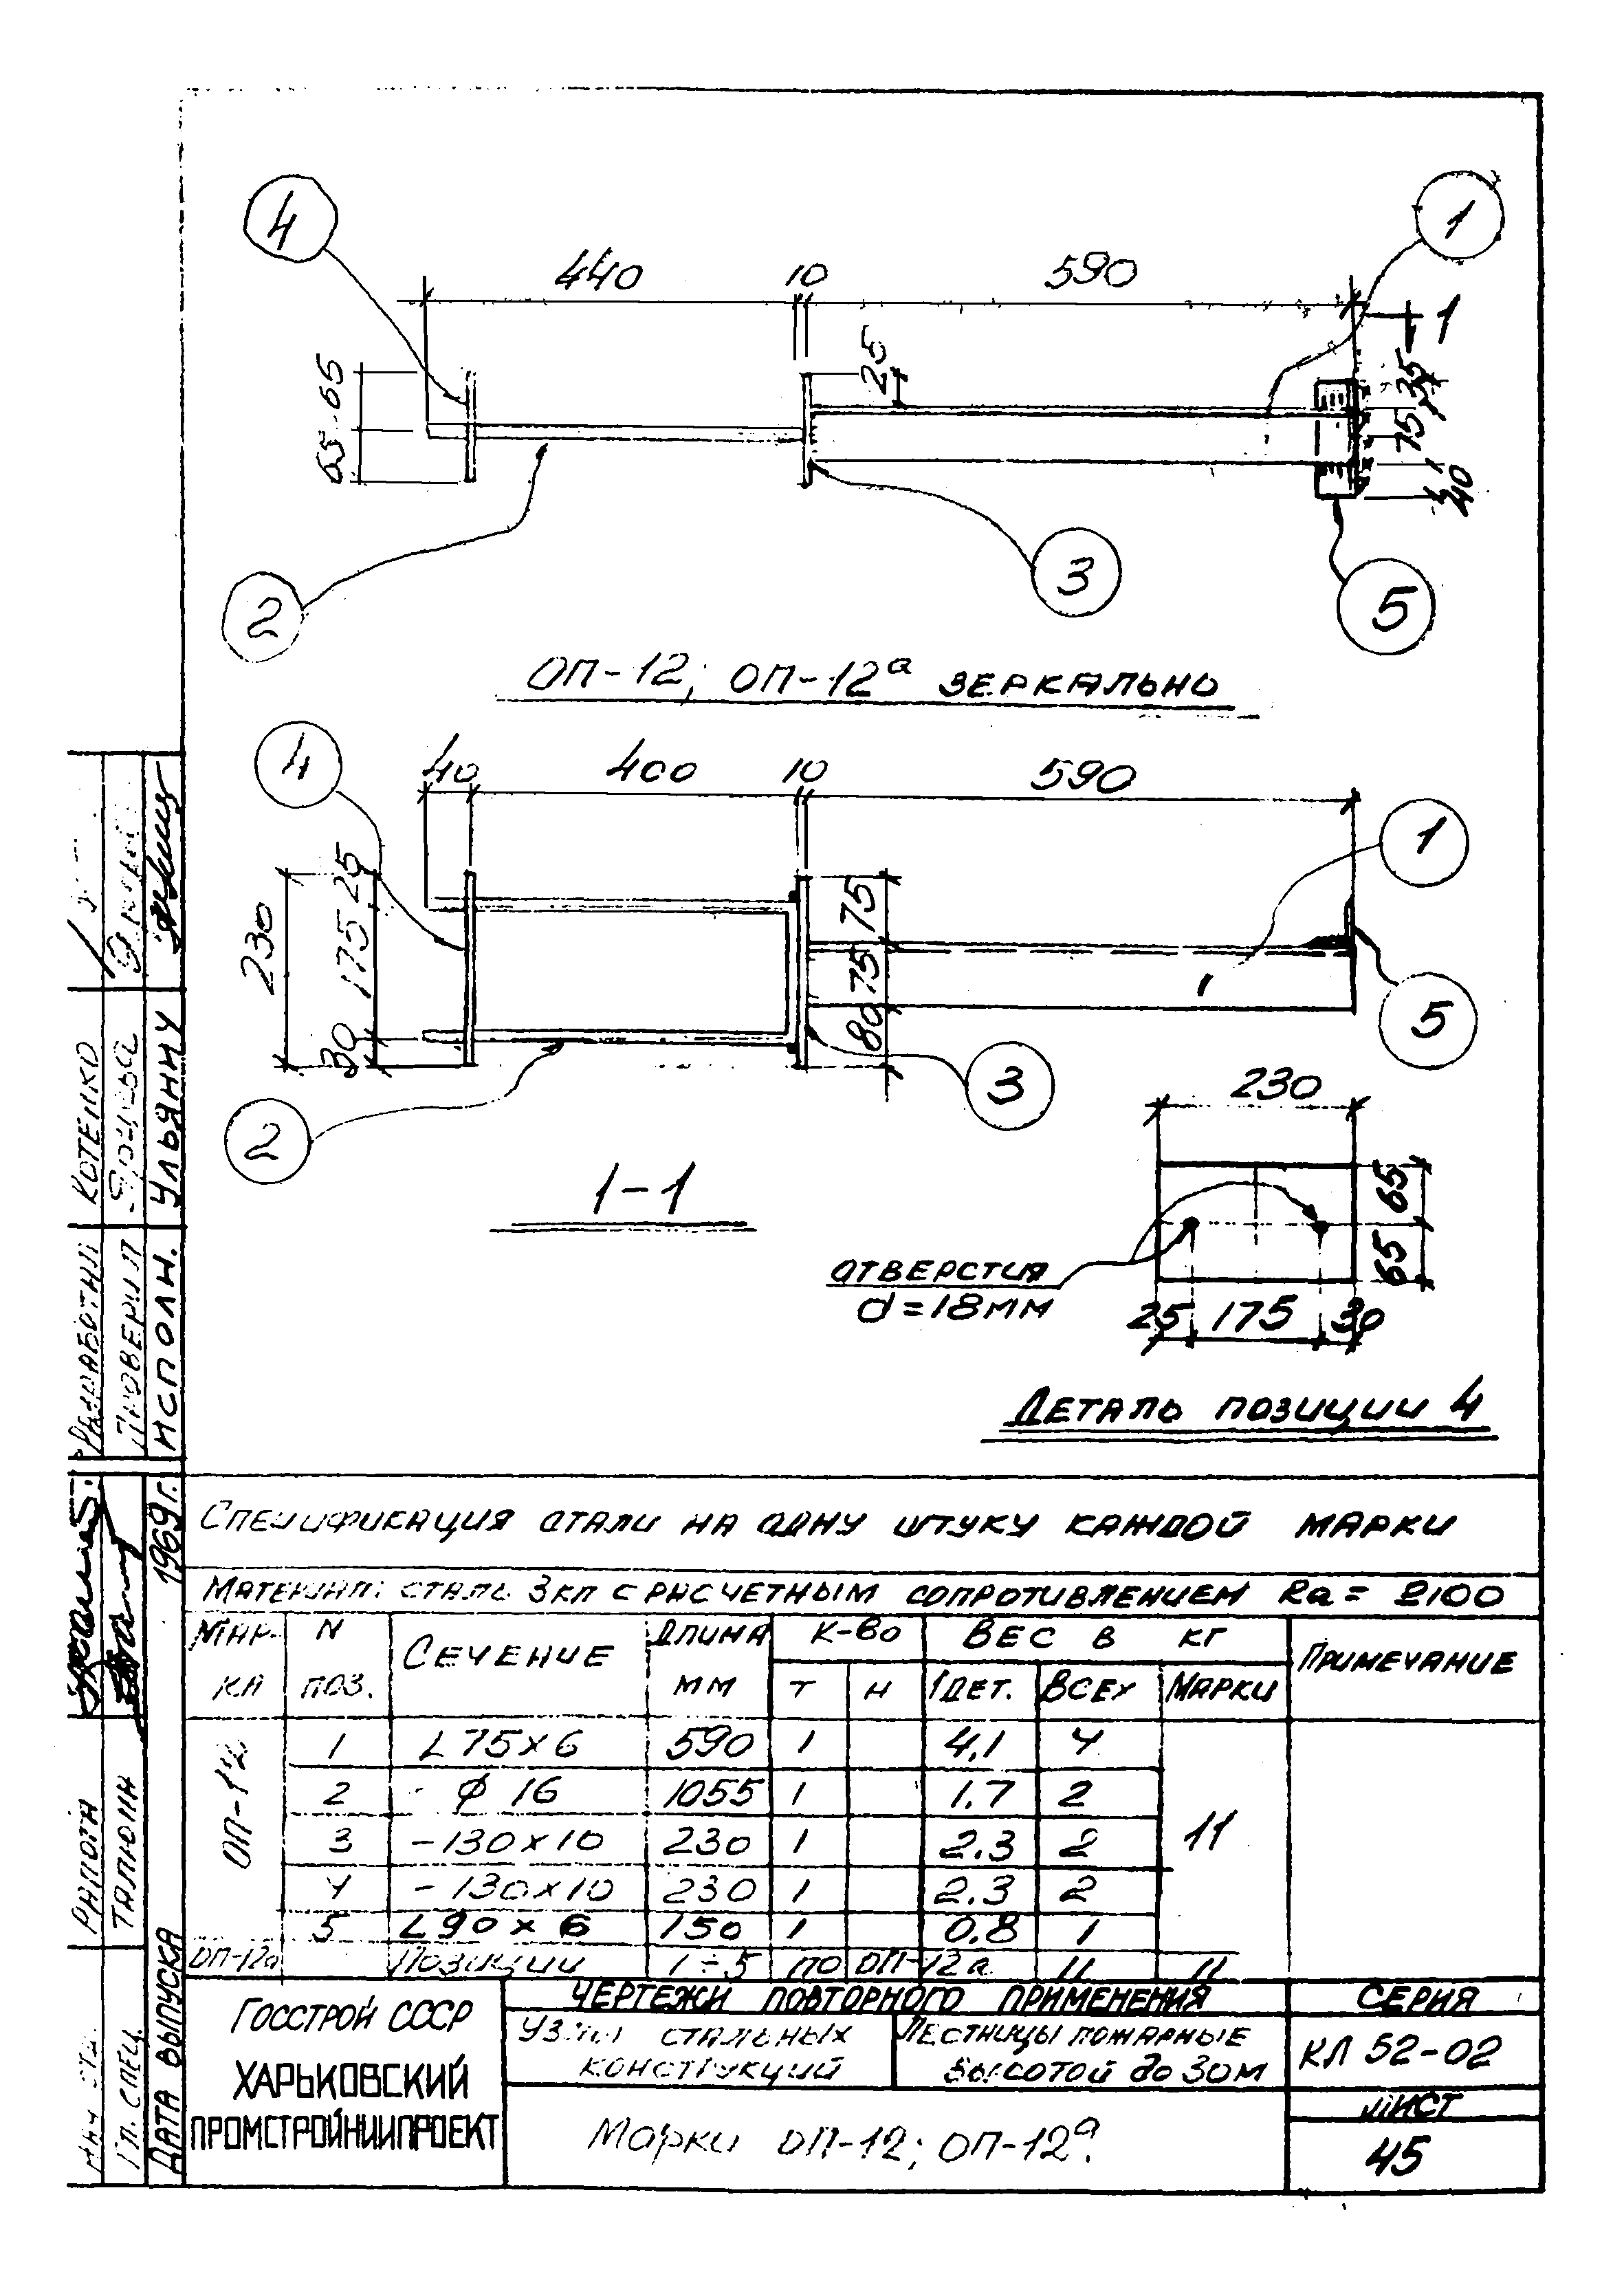 4
1
440 10 590
1
65 65
25
35
75
40
2
3
5
ОП-12; ОП-12а ЗЕРКАЛЬНО
4
40 400 10 590
1
230
25
175
30
75
75
80
5
3
2
1-1
230
65
65
ОТВЕРСТИЯ
d=18мм
25 175 30
ДЕТАЛЬ ПОЗИЦИИ 4
СПЕЦИФИКАЦИЯ СТАЛИ НА ОДНУ ШТУКУ КАЖДОЙ МАРКИ
МАТЕРИАЛ: СТАЛЬ 3КП С РАСЧЕТНЫМ СОПРОТИВЛЕНИЕМ Rа = 2100
МАР-КА N ПОЗ. СЕЧЕНИЕ ДЛИНА ММ К-ВО ВЕС В КГ ПРИМЕЧАНИЕ
Т Н 1ДЕТ. ВСЕХ МАРКИ
ОП-12 1 L75×6 590 1 4,1 4 11
2 ϕ 16 1055 1 1.7 2
3 -130×10 230 1 2.3 2
4 -130×10 230 1 2.3 2
5 L90×6 150 1 0.8 1
ОП-12а ПОЗИЦИИ 1÷5 ПО ОП-12а 11 11
ГОССТРОЙ СССР
ХАРЬКОВСКИЙ
ПРОМСТРОЙНИИПРОЕКТ
ЧЕРТЕЖИ ПОВТОРНОГО ПРИМЕНЕНИЯ
УЗЛЫ СТАЛЬНЫХ
КОНСТРУКЦИЙ
ЛЕСТНИЦЫ ПОЖАРНЫЕ
ВЫСОТОЙ ДО 30М
Марки ОП-12; ОП-12а.
СЕРИЯ
КЛ 52-02
ЛИСТ
45
РАЗРАБОТАЛ КОТЕНКО
ПРОВЕРИЛ
ИСПОЛН. УЛЬЯНИЧ
РАПОТА
ГЛ. СПЕЦ. ТАЛЮПА
ДАТА ВЫПУСКА 1969г.